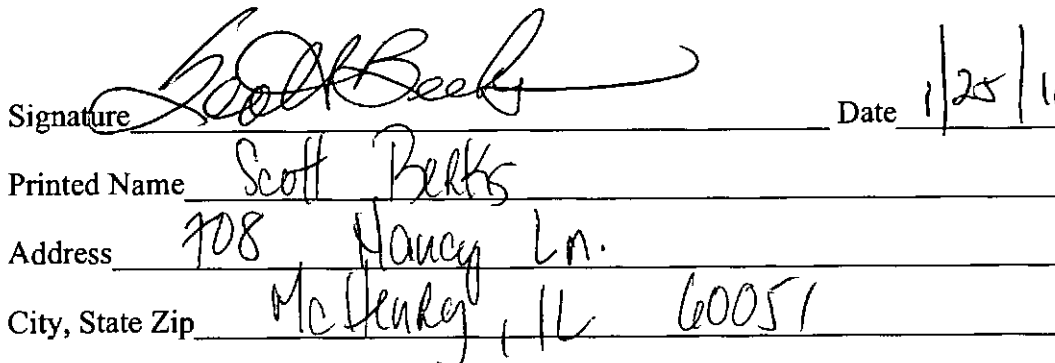 Signature Scott Beeks Date 1/25/1
Printed Name Scott Beeks
Address 708 Nancy Ln.
City, State Zip McHenry, IL 60051